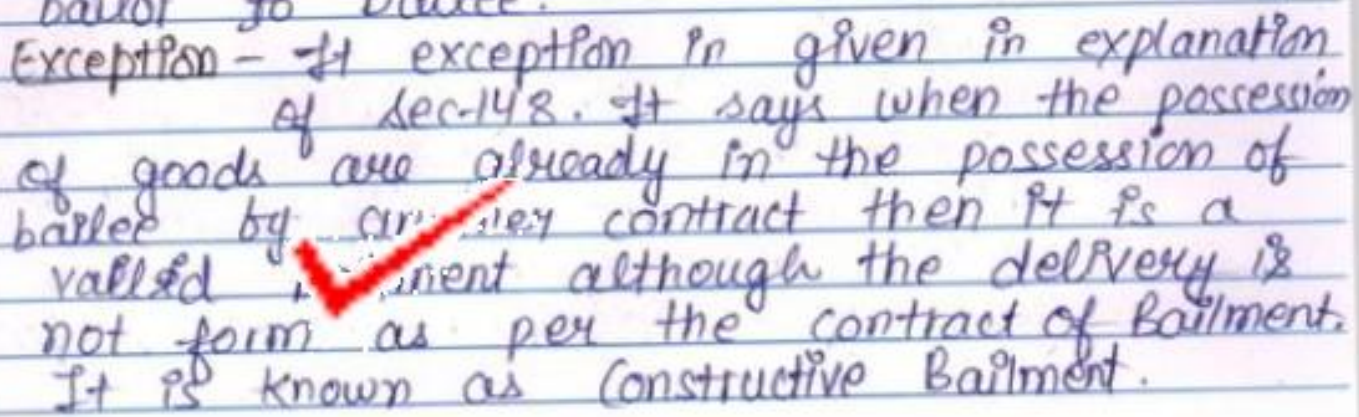 bailor to bailee.
Exception - It exception in given in explanation
of sec-148. It says when the possession
of goods are already in the possession of
bailee by contract then it is a
vallid although the delivery is
not form as per the contract of Bailment.
It is known as Constructive Bailment.